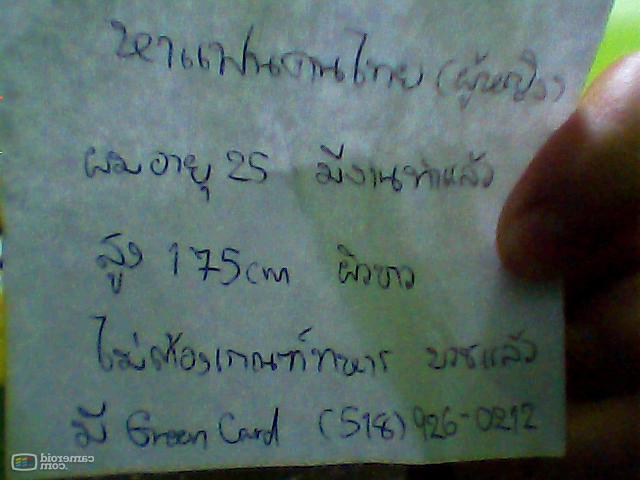 หาแฟนงานไทย (ผู้หญิง)
ผมอายุ 25 มีงานทำแล้ว
สูง 175cm ผิวขาว
ไม่ต้องเกณฑ์ทหาร บวชแล้ว
มี Green Card (518) 926-0212
cameroid.com